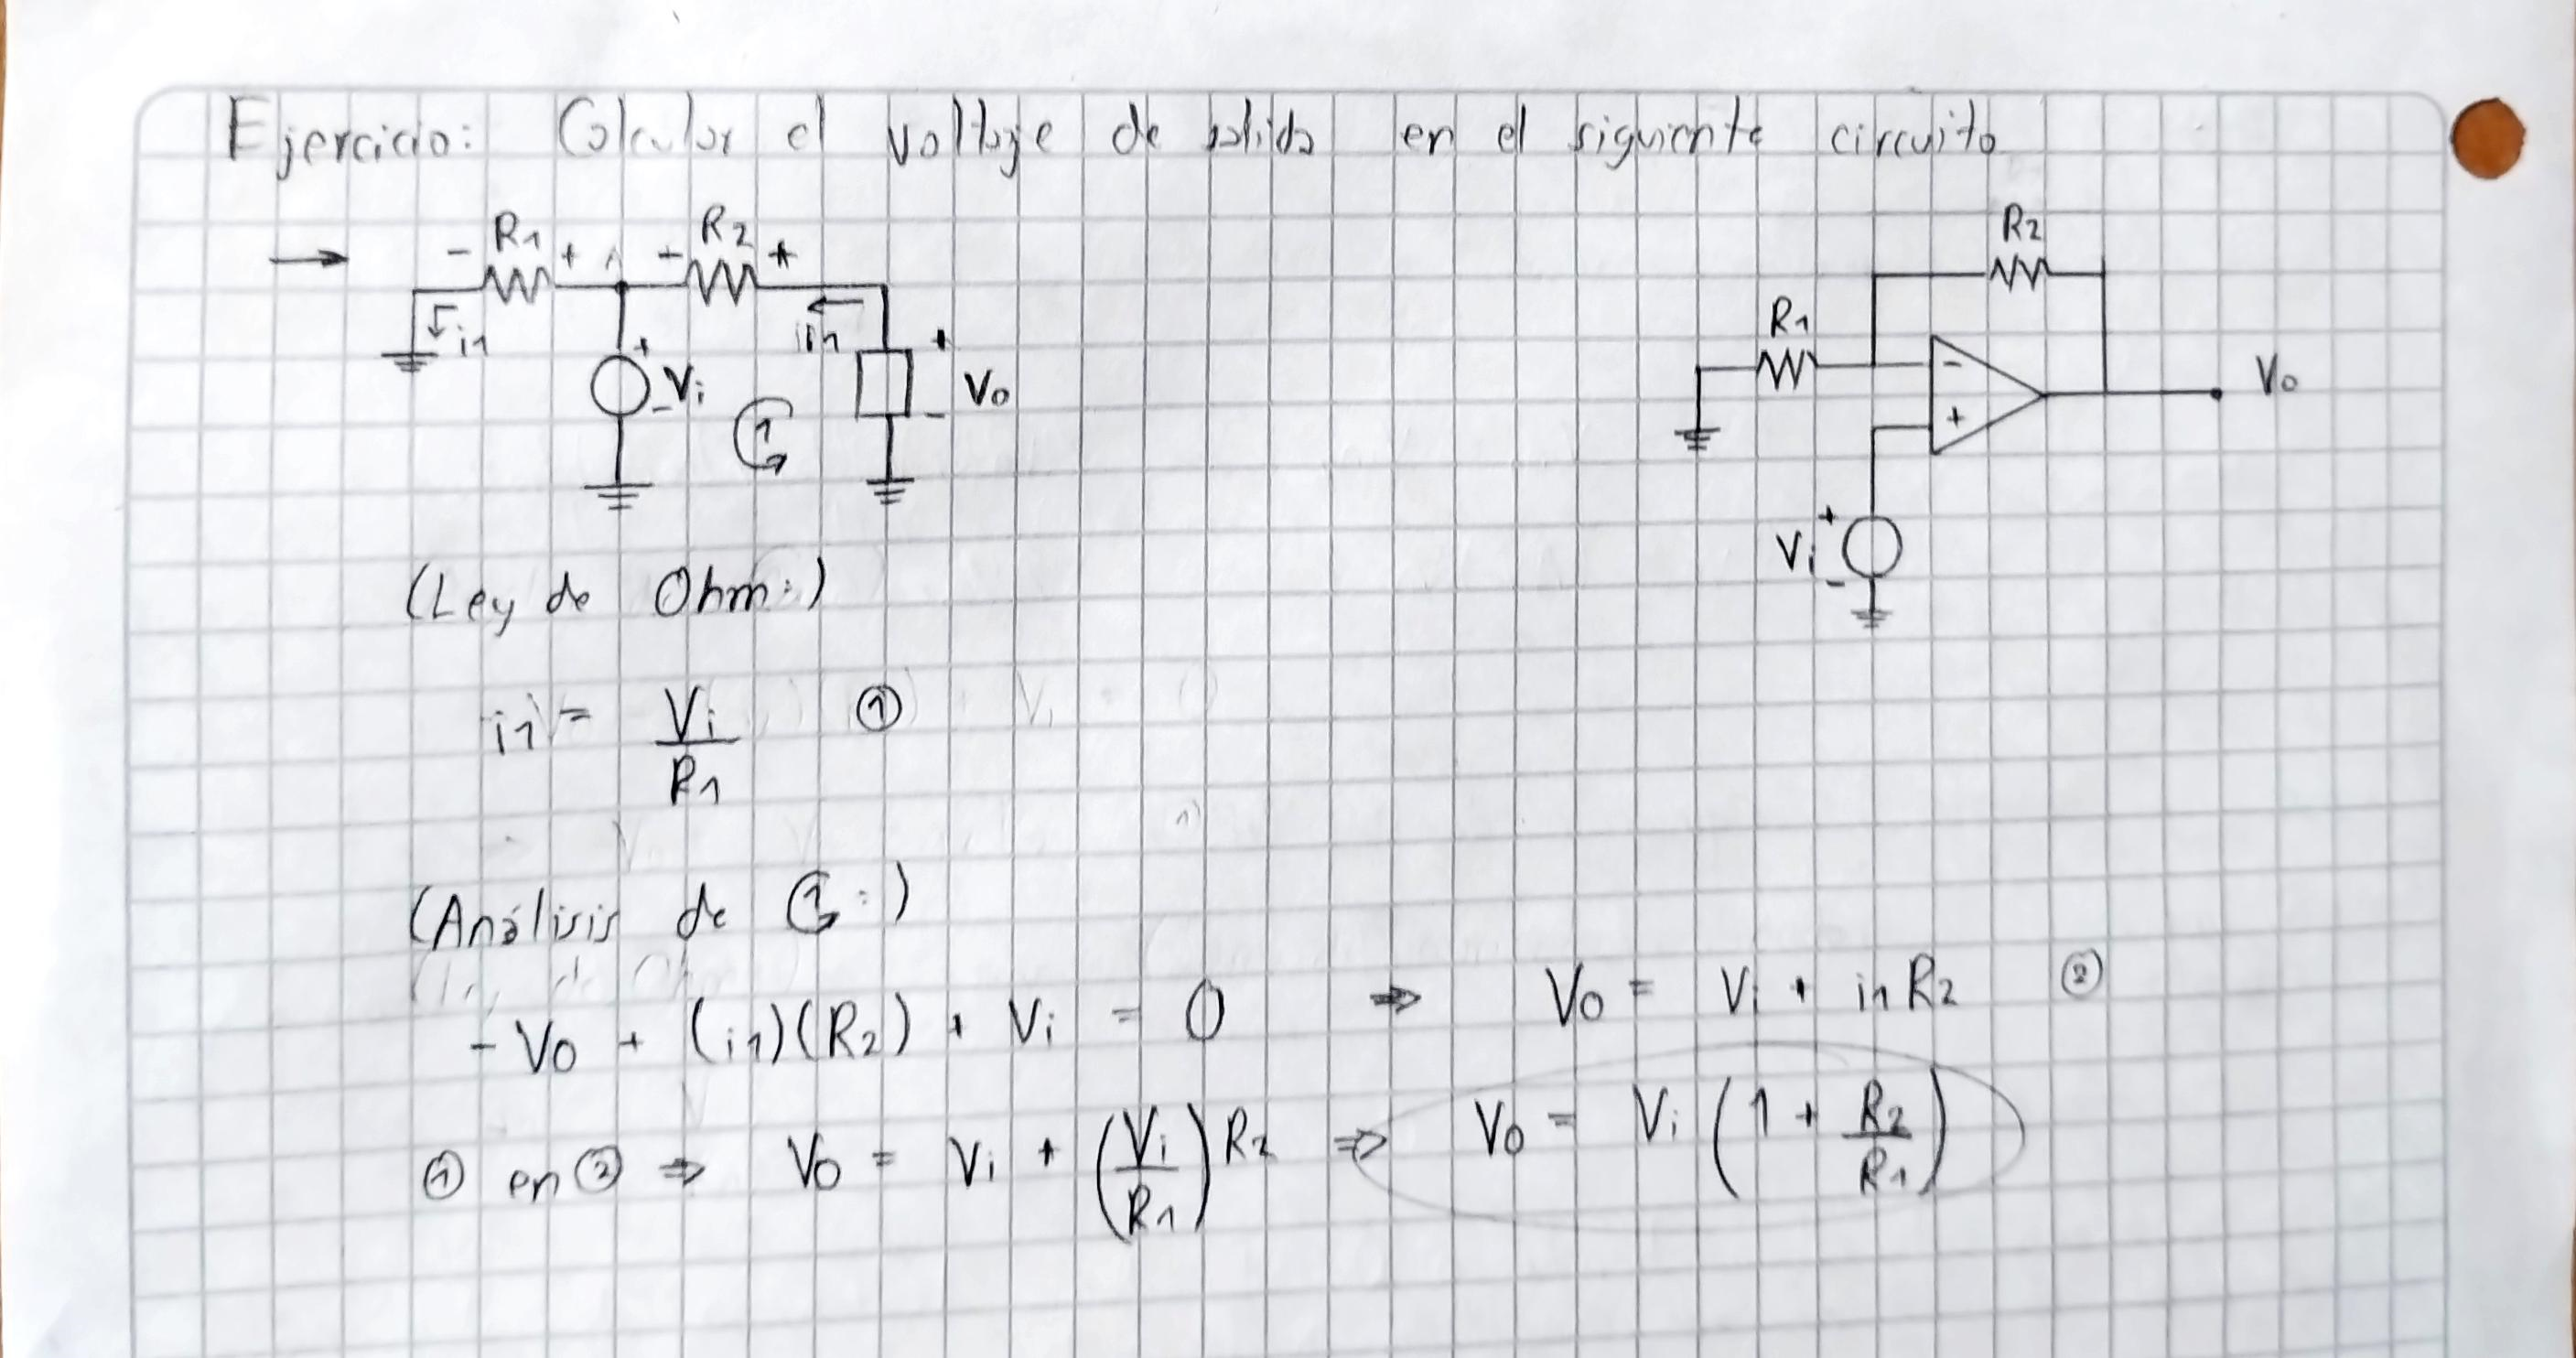 Ejercicio: Calcular el voltaje de salida en el siguiente circuito
R2
R1
-
+
Vo
+
Vi
-
→ - R1 + - R2 +
i1
i1
+
Vi
-
1
+
Vo
-
(Ley de Ohm:)
i1 = Vi / R1 ①
(Análisis de 1:)
- Vo + (i1)(R2) + Vi = 0 ⇒ Vo = Vi + i1 R2 ②
① en ② ⇒ Vo = Vi + (Vi / R1) R2 ⇒ Vo = Vi (1 + R2 / R1)